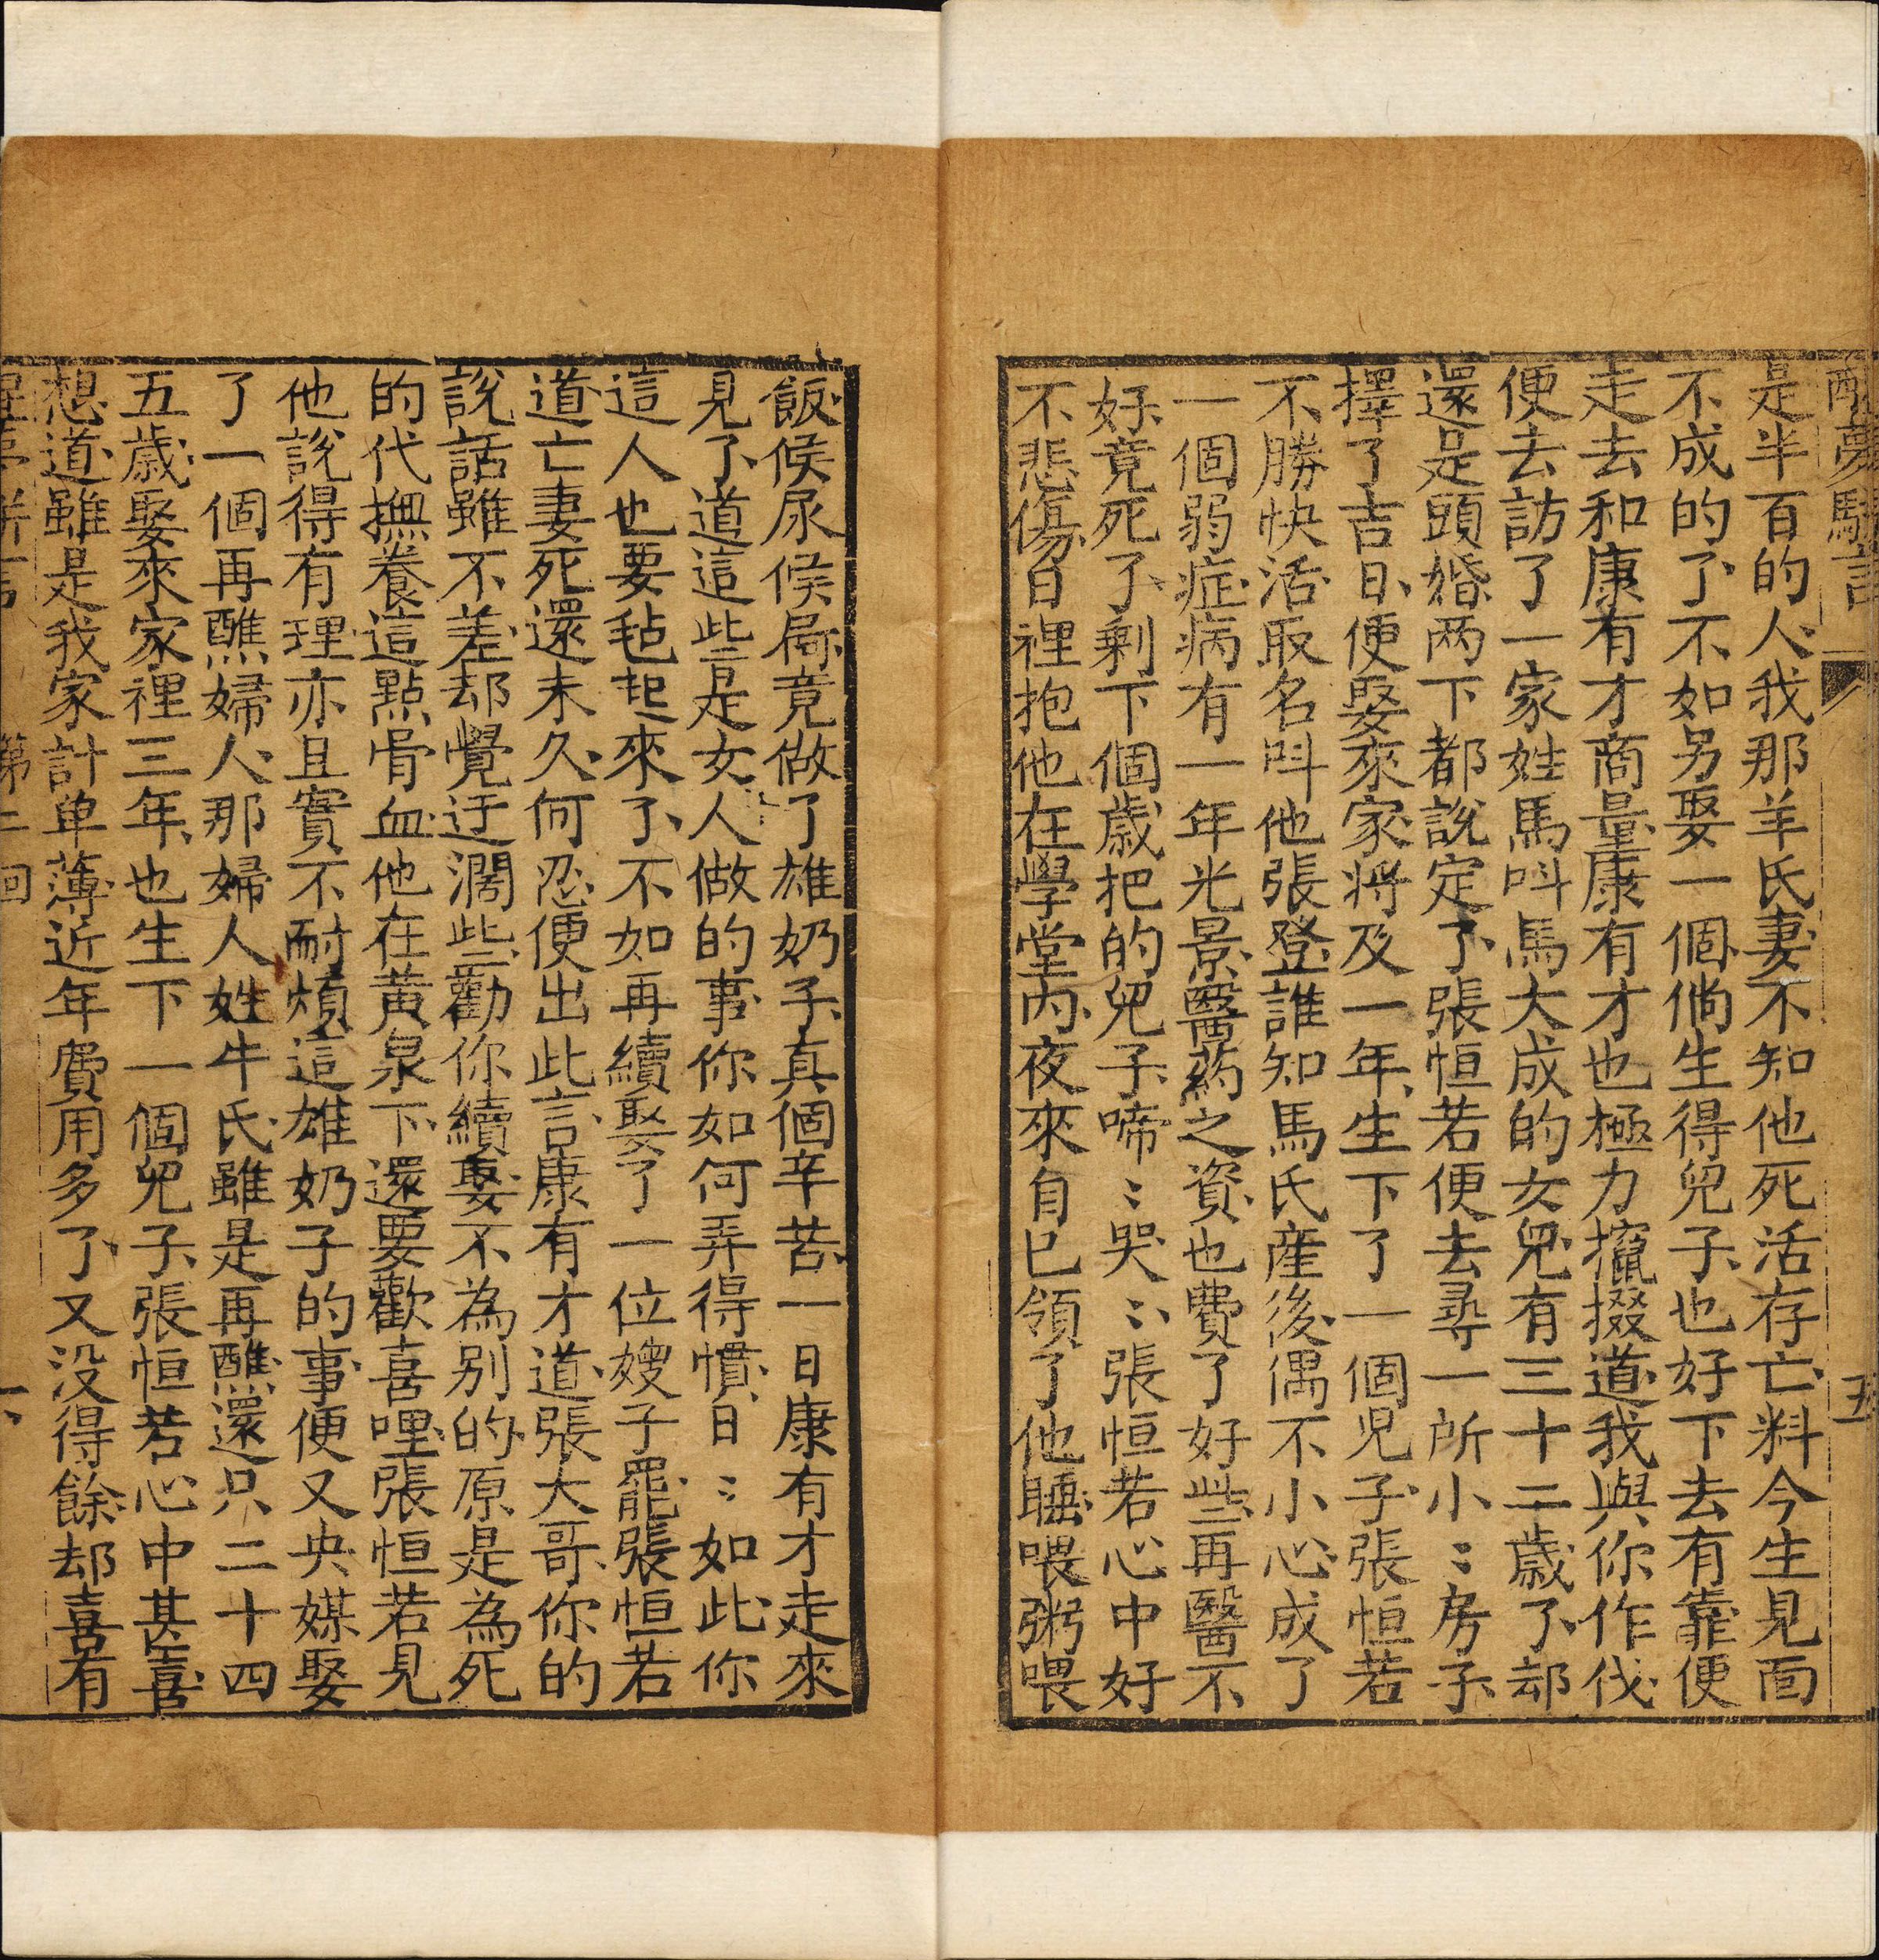 醒夢駢言 五
是半百的人我那羊氏妻不知他死活存亡料今生見面
不成的了不如另娶一個倘生得兒子也好下去有靠便
走去和康有才商量康有才也極力攛掇道我與你作伐
便去訪了一家姓馬呌馬大成的女兒有三十二歲了却
還是頭婚两下都說定了張恒若便去尋一所小〻房子
擇了吉日便娶來家將及一年生下了一個兒子張恒若
不勝快活取名呌他張登誰知馬氏產後偶不小心成了
一個弱症病有一年光景醫药之資也費了好些再醫不
好竟死了剩下個歲把的兒子啼〻哭〻張恒若心中好
不悲傷日裡抱他在學堂內夜來自已領了他睡喂粥喂
飯候尿候屙竟做了雄奶子真個辛苦一日康有才走來
見了道這些是女人做的事你如何弄得慣日〻如此你
這人也要毡起來了不如再續娶了一位嫂子罷張恒若
道亡妻死還未久何忍便出此言康有才道張大哥你的
說話雖不差却覺迂濶些勸你續娶不為别的原是為死
的代撫養這點骨血他在黄泉下還要歡喜哩張恒若見
他說得有理亦且實不耐煩這雄奶子的事便又央媒娶
了一個再醮婦人那婦人姓牛氏雖是再醮還只二十四
五歲娶來家裡三年也生下一個兒子張恒若心中甚喜
想道雖是我家計单薄近年費用多了又没得餘却喜有
醒夢駢言 第二回